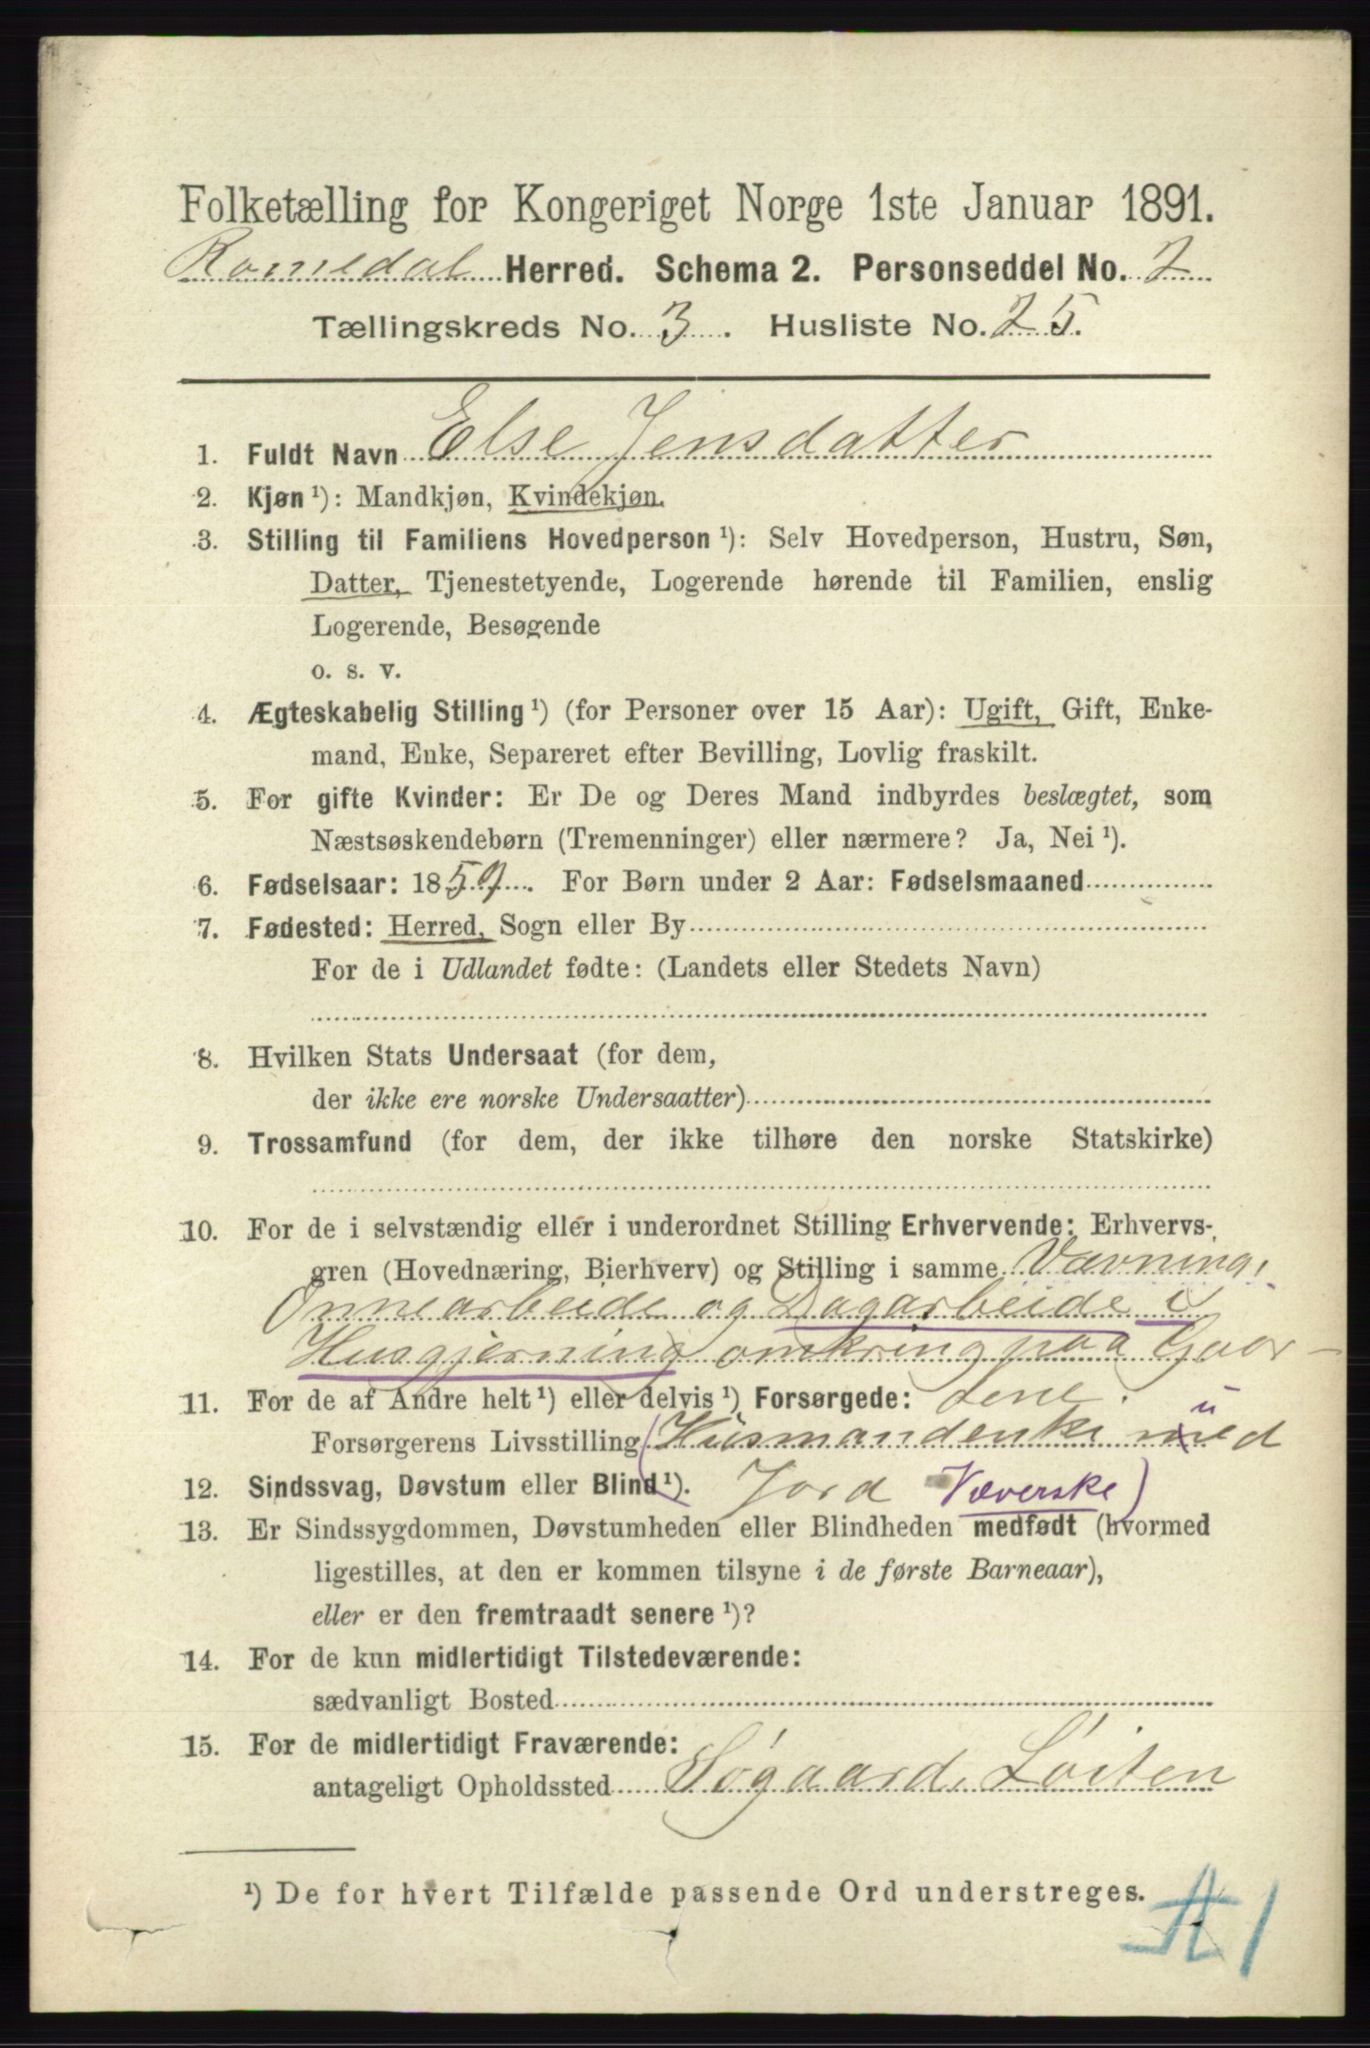 Folketælling for Kongeriget Norge 1ste Januar 1891.
Romedal Herred. Schema 2. Personseddel No. 2
Tællingskreds No. 3. Husliste No. 25.
1. Fuldt Navn Else Jensdatter
2. Kjøn ¹): Mandkjøn, Kvindekjøn.
3. Stilling til Familiens Hovedperson ¹): Selv Hovedperson, Hustru, Søn,
Datter, Tjenestetyende, Logerende hørende til Familien, enslig
Logerende, Besøgende
o. s. v.
4. Ægteskabelig Stilling ¹) (for Personer over 15 Aar): Ugift, Gift, Enke-
mand, Enke, Separeret efter Bevilling, Lovlig fraskilt.
5. For gifte Kvinder: Er De og Deres Mand indbyrdes beslægtet, som
Næstsøskendebørn (Tremenninger) eller nærmere? Ja, Nei ¹).
6. Fødselsaar: 1857. For Børn under 2 Aar: Fødselsmaaned
7. Fødested: Herred, Sogn eller By
For de i Udlandet fødte: (Landets eller Stedets Navn)
8. Hvilken Stats Undersaat (for dem,
der ikke ere norske Undersaatter)
9. Trossamfund (for dem, der ikke tilhøre den norske Statskirke)
10. For de i selvstændig eller i underordnet Stilling Erhvervende: Erhvervs-
gren (Hovednæring, Bierhverv) og Stilling i samme Vævning,
Onnearbeide og Dagarbeide i
Husgjerning omkring paa Gaar-
11. For de af Andre helt ¹) eller delvis ¹) Forsørgede: dene.
Forsørgerens Livsstilling (Husmandenke med u
12. Sindssvag, Døvstum eller Blind ¹). Jord Væverske)
13. Er Sindssygdommen, Døvstumheden eller Blindheden medfødt (hvormed
ligestilles, at den er kommen tilsyne i de første Barneaar),
eller er den fremtraadt senere ¹)?
14. For de kun midlertidigt Tilstedeværende:
sædvanligt Bosted
15. For de midlertidigt Fraværende:
antageligt Opholdssted Søgaard, Løiten
¹) De for hvert Tilfælde passende Ord understreges.
A 1